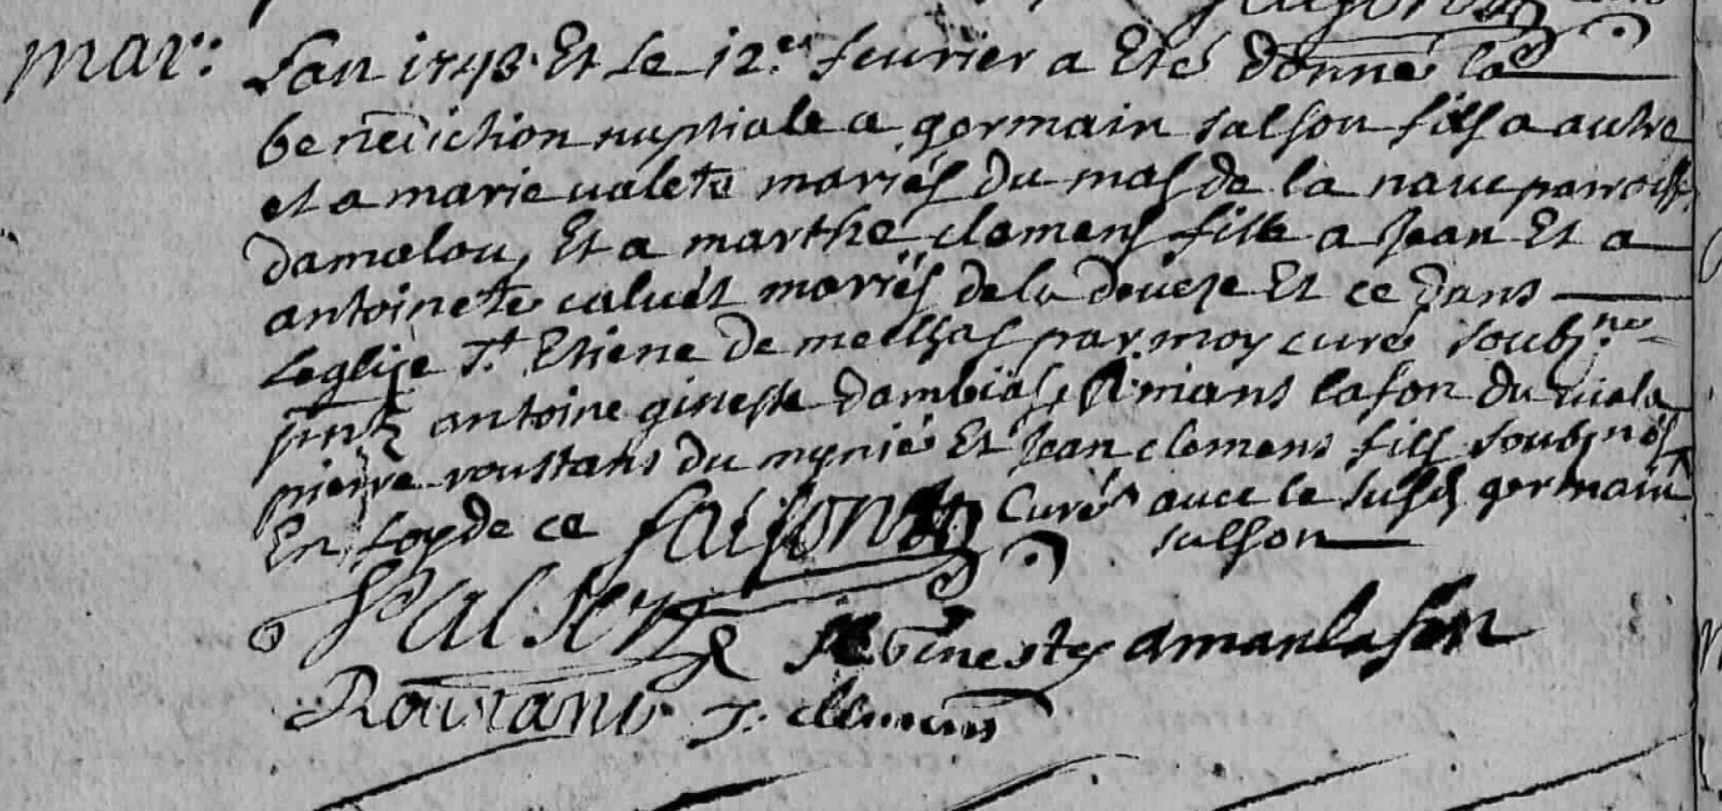 mar: Lan 1743 Et Le 12.e feurier a Eté donné la
benediction nuptiale a germain salson fils a autre
et a marie valete mariés du mas de la naue parroisse
damolou, Et a marthe clemens fille a Jean Et a
antoinete caluet mariés de la deuese Et ce dans
Leglise St. Etiene de melhas par moy curé soubs.né
pnts antoine gineste dambials, Amans lafon du viala
pierre roustans du mynié Et Jean clemens fils soubsnés
En foy de ce Curé auec le susd germain
salson
Salson Gineste amanlafon
Roustans J. clemens